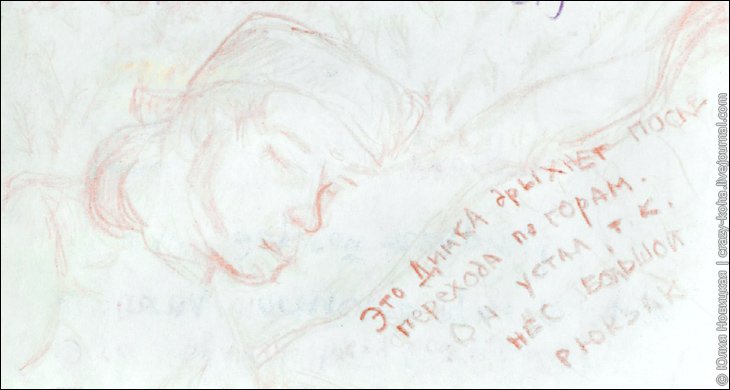 Это Димка дрыхнет после
перехода по горам.
Он устал, т.к.
нёс большой
рюкзак
© Юлия Новицкая | crazy-koha.livejournal.com